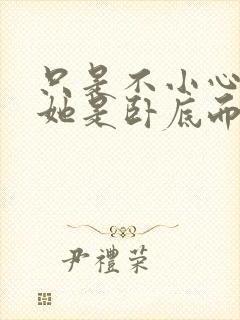 只是不小心
她是卧底而
尹禮荣